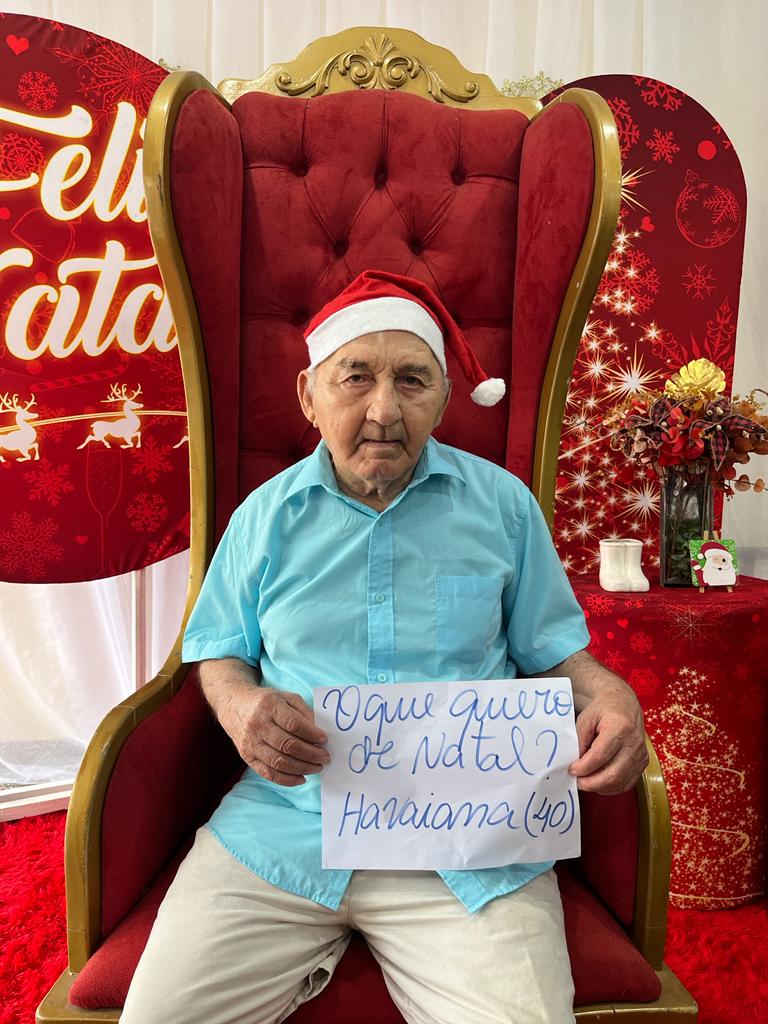 Feliz
Natal
O que quero
de Natal?
Havaiana (40)